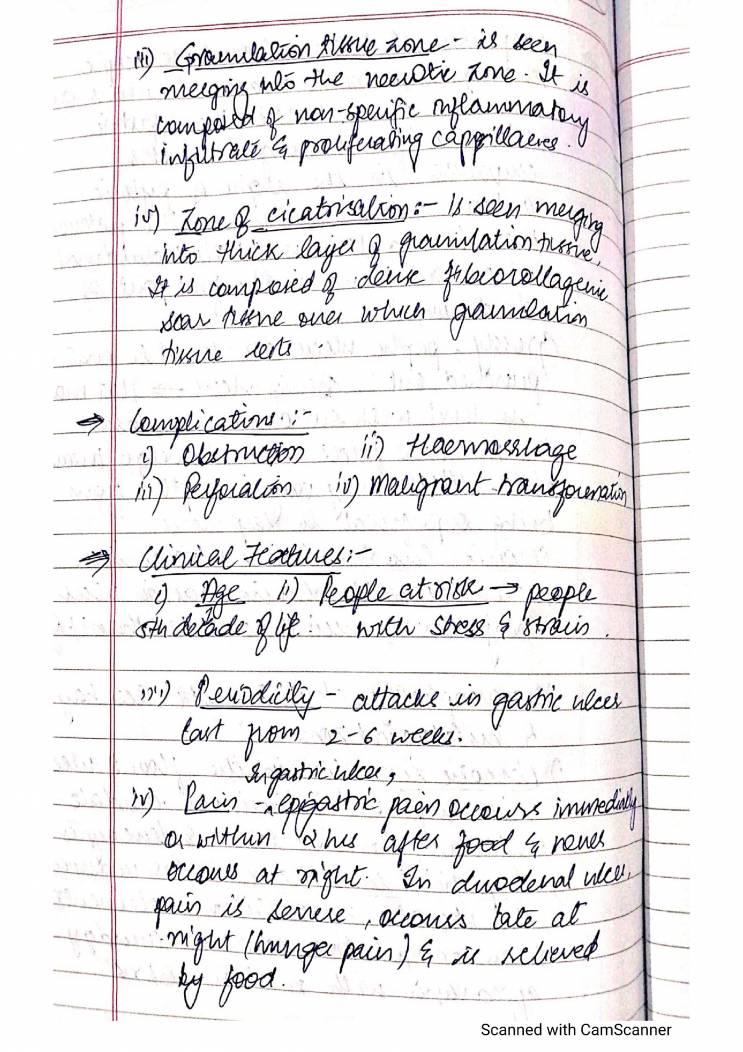 iii) Granulation tissue zone - is seen
merging into the necrotic zone. It is
composed of non-specific inflammatory
infiltrate & proliferating cappillaries.
iv) Zone of cicatrisation :- Is seen merging
into thick layer of granulation tissue.
It is composed of dense fibrocollagenic
scar tissue over which granulation
tissue rests.
⇒ Complications :-
i) Obstruction ii) Haemorrhage
iii) Perforation iv) Malignant transformation
⇒ Clinical Features :-
i) Age ii) People at risk → people
5th decade of life. with stress & strain.
iii) Periodicity - attacks in gastric ulcer
last from 2-6 weeks.
In gastric ulcer,
iv) Pain - epigastric pain occours immediatly
or within 2 hrs after food & never
occours at night. In duodenal ulcer,
pain is severe, occours late at
night (hunger pain) & is relieved
by food.
Scanned with CamScanner